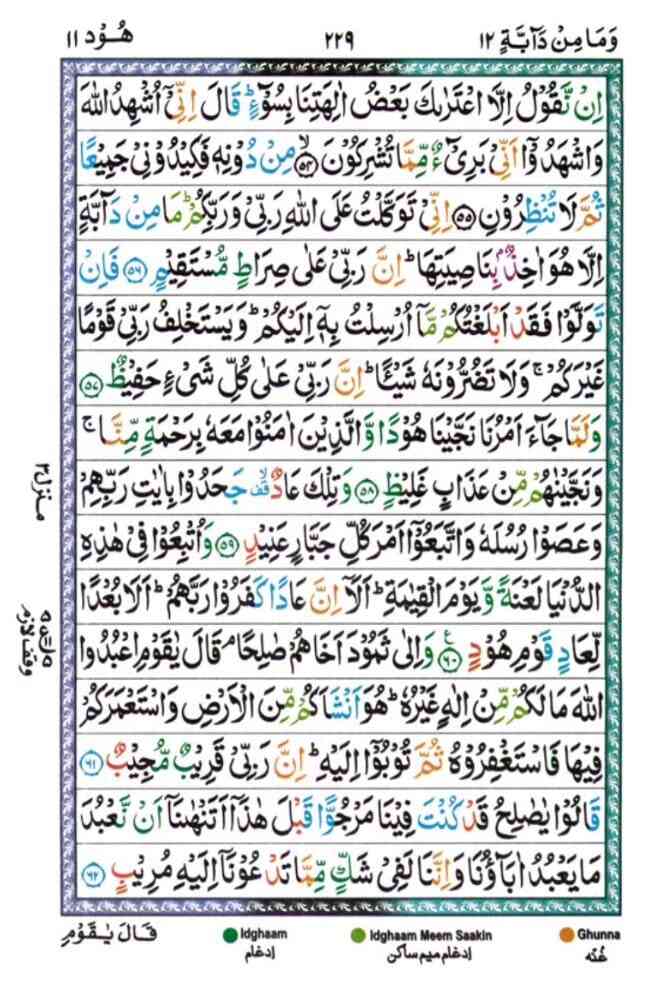 وَمَا مِنْ دَآبَّةٍ ١٢
٢٢٩
هُوْد ١١
اِنْ نَّقُوْلُ اِلَّا اعْتَرٰىكَ بَعْضُ اٰلِهَتِنَا بِسُوْٓءٍ ؕ قَالَ اِنِّیْۤ اُشْهِدُ اللّٰهَ
وَاشْهَدُوْۤا اَنِّیْ بَرِیْٓءٌ مِّمَّا تُشْرِكُوْنَ ۙ﴿٥٤﴾ مِنْ دُوْنِهٖ فَكِيْدُوْنِیْ جَمِيْعًا
ثُمَّ لَا تُنْظِرُوْنِ ﴿٥٥﴾ اِنِّیْ تَوَكَّلْتُ عَلَى اللّٰهِ رَبِّیْ وَرَبِّكُمْ ؕ مَا مِنْ دَآبَّةٍ
اِلَّا هُوَ اٰخِذٌۢ بِنَاصِيَتِهَا ؕ اِنَّ رَبِّیْ عَلٰى صِرَاطٍ مُّسْتَقِيْمٍ ﴿٥٦﴾ فَاِنْ
تَوَلَّوْا فَقَدْ اَبْلَغْتُكُمْ مَّاۤ اُرْسِلْتُ بِهٖۤ اِلَيْكُمْ ؕ وَيَسْتَخْلِفُ رَبِّیْ قَوْمًا
غَيْرَكُمْ ۚ وَلَا تَضُرُّوْنَهٗ شَيْـًٔا ؕ اِنَّ رَبِّیْ عَلٰى كُلِّ شَیْءٍ حَفِيْظٌ ﴿٥٧﴾
وَلَمَّا جَآءَ اَمْرُنَا نَجَّيْنَا هُوْدًا وَّالَّذِيْنَ اٰمَنُوْا مَعَهٗ بِرَحْمَةٍ مِّنَّا ۚ
وَنَجَّيْنٰهُمْ مِّنْ عَذَابٍ غَلِيْظٍ ﴿٥٨﴾ وَتِلْكَ عَادٌ ۟ۙ قف جَحَدُوْا بِاٰيٰتِ رَبِّهِمْ
وَعَصَوْا رُسُلَهٗ وَاتَّبَعُوْۤا اَمْرَ كُلِّ جَبَّارٍ عَنِيْدٍ ﴿٥٩﴾ وَاُتْبِعُوْا فِیْ هٰذِهِ
الدُّنْيَا لَعْنَةً وَّيَوْمَ الْقِيٰمَةِ ؕ اَلَاۤ اِنَّ عَادًا كَفَرُوْا رَبَّهُمْ ؕ اَلَا بُعْدًا
لِّعَادٍ قَوْمِ هُوْدٍ ﴿٦٠﴾ ع وَاِلٰى ثَمُوْدَ اَخَاهُمْ صٰلِحًا ۘ قَالَ يٰقَوْمِ اعْبُدُوا
اللّٰهَ مَا لَكُمْ مِّنْ اِلٰهٍ غَيْرُهٗ ؕ هُوَ اَنْشَاَكُمْ مِّنَ الْاَرْضِ وَاسْتَعْمَرَكُمْ
فِيْهَا فَاسْتَغْفِرُوْهُ ثُمَّ تُوْبُوْۤا اِلَيْهِ ؕ اِنَّ رَبِّیْ قَرِيْبٌ مُّجِيْبٌ ﴿٦١﴾
قَالُوْا يٰصٰلِحُ قَدْ كُنْتَ فِيْنَا مَرْجُوًّا قَبْلَ هٰذَاۤ اَتَنْهٰىنَاۤ اَنْ نَّعْبُدَ
مَا يَعْبُدُ اٰبَآؤُنَا وَاِنَّنَا لَفِیْ شَكٍّ مِّمَّا تَدْعُوْنَاۤ اِلَيْهِ مُرِيْبٍ ﴿٦٢﴾
منزل ٣
وقف لازم
قَالَ يٰقَوْمِ
Idghaam
Idghaam Meem Saakin
Ghunna
ادغام
ادغام میم ساکن
غنّه